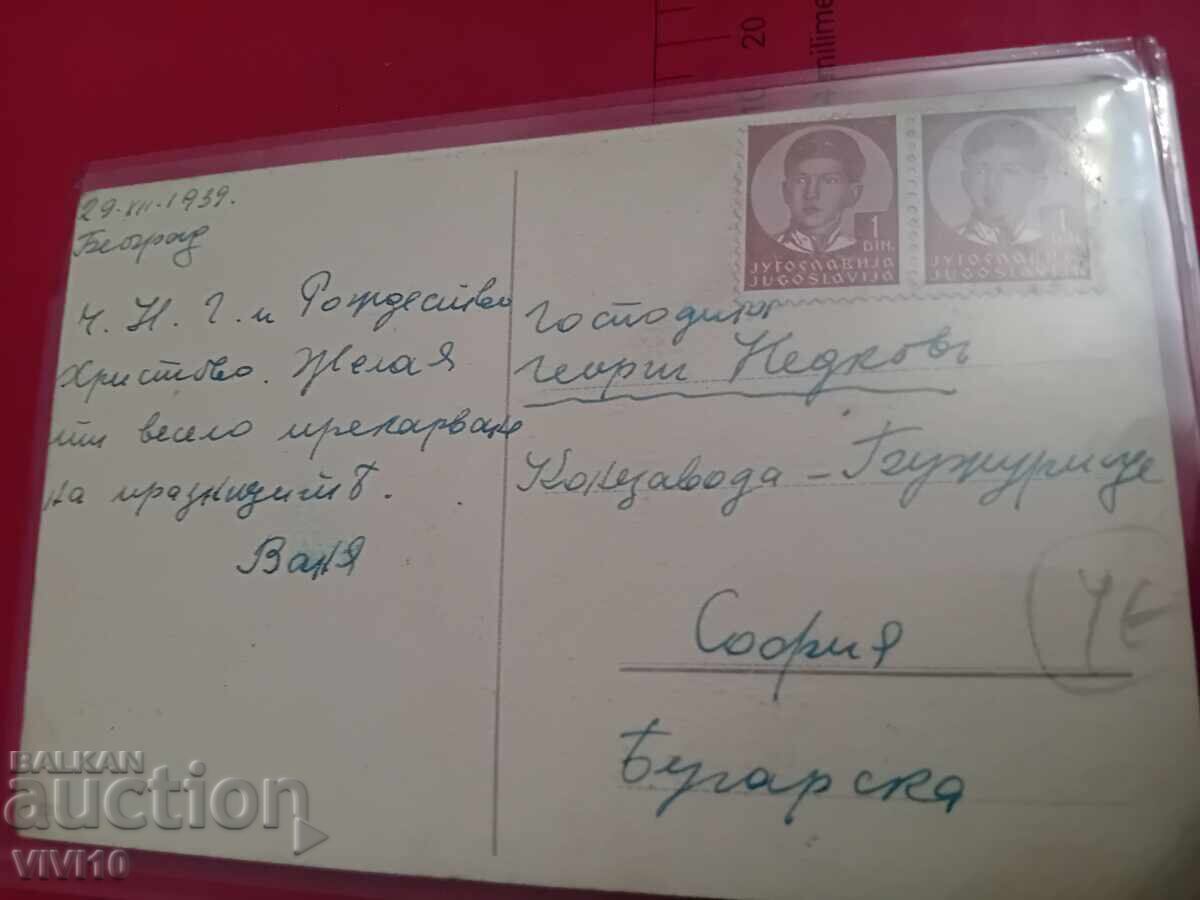 20
milime
29-XII-1939.
Београд
Ч. Н. Г. и Рождество
Христово. Желая
ти весело прекарване
на празницитѣ.
Ваня
1
DIN.
ЈУГОСЛАВИЈА
JUGOSLAVIJA
1
DIN.
ЈУГОСЛАВИЈА
JUGOSLAVIJA
Господинъ
Георги Недковъ
Конезавода - Бужурище
София
Бугарска
BALKAN
auction
VIVI10